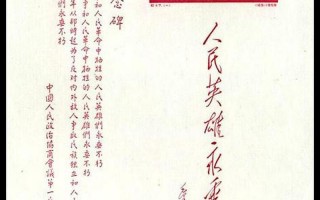 人民英雄永垂
念碑
和人民革命中牺牲的人民英雄們永垂不朽
争和人民革命中牺牲的人民英雄們永垂不朽
年从那时起为了反对内外敌人争取民族独立和人
們永垂不朽
中國人民政治協商會議第一